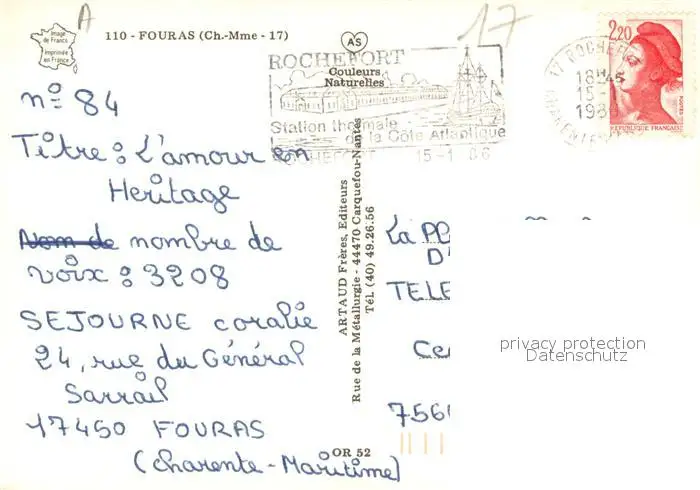 Image
de France
Imprimée
en France
A
110 - FOURAS (Ch.-Mme - 17)
AS
Couleurs
Naturelles
17
ROCHEFORT
Station thermale
de la Côte Atlantique
ROCHEFORT 15-1 86
17 ROCHEFORT
18H45
15-1
198
2,20
REPUBLIQUE FRANÇAISE
n° 84
Titre : L'amour en
Heritage
Nom de nombre de
voix : 3208
SEJOURNE coralie
24, rue du Général
Sarrail
17450 FOURAS
(Charente-Maritime)
ARTAUD Frères, Editeurs
Rue de la Métallurgie - 44470 Carquefou-Nantes
Tél. (40) 49.26.56
OR 52
La PL
D'
TELE
Ce
756
privacy protection
Datenschutz